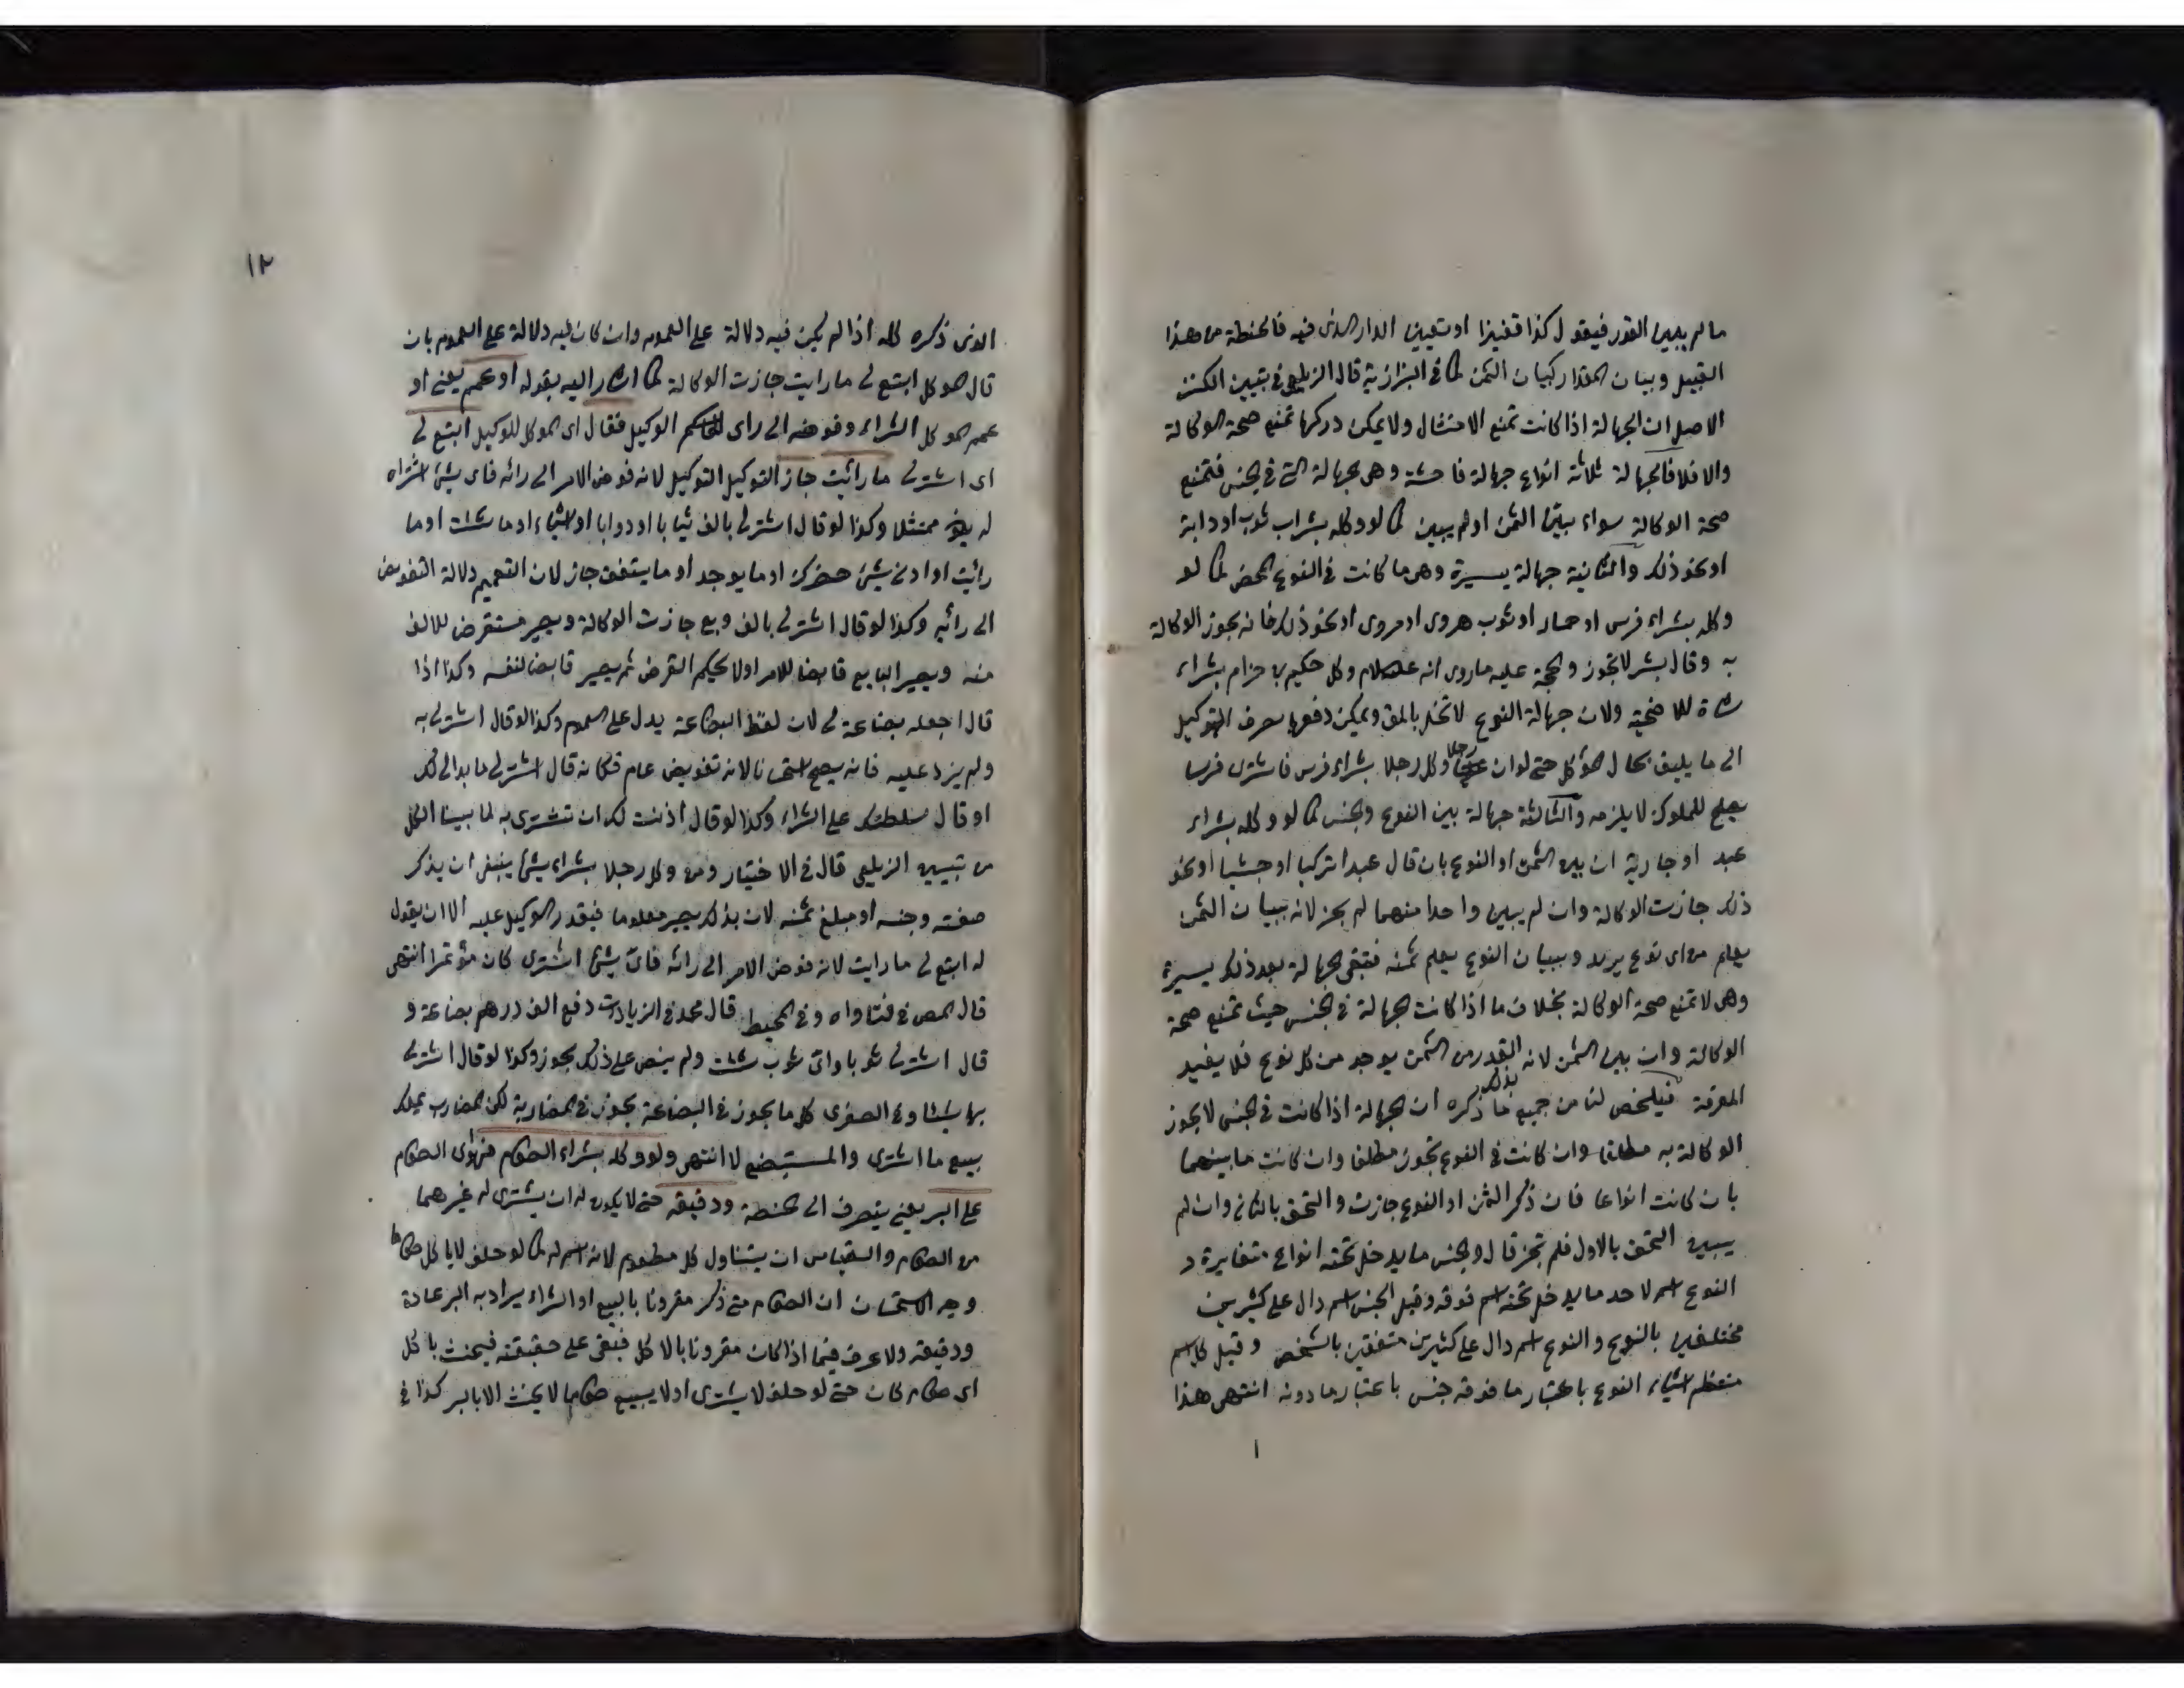 ما لم يبين القدر فيقول كذا قفيزا او تعيين الدار الذى فيه فالحنطة من هذا
القبيل وبيان المقدار كبيان الثمن كما فى البزازية قال الزيلعى فى تبيين الكنز
الاصل ان الجهالة اذا كانت تمنع الامتثال ولا يمكن دركها تمنع صحة الوكالة
والا فلا فالجهالة ثلاثة انواع جهالة فاحشة وهى جهالة التى فى الجنس فتمنع
صحة الوكالة سواء بين الثمن او لم يبين كما لو وكله بشراب ثوب او دابة
او نحو ذلك والثانية جهالة يسيرة وهى ما كانت فى النوع المحض كما لو
وكله بشراء فرس او حمار او ثوب هروى او مروى او نحو ذلك فانه يجوز الوكالة
به وقال بشر لا تجوز والحجة عليه ما روى انه علسلام وكل حكيم بن حزام بشراء
شاة للاضحية ولان جهالة النوع لا تخل بالمق ويمكن دفعها بصرف التوكيل
الى ما يليق بحال الموكل حتى لو ان رجلا وكل رجلا بشراء فرس فاشترى فرسا
يصلح للملوك لا يلزمه والثالثة جهالة بين النوع والجنس كما لو وكله بشراء
عبد او جارية ان بين الثمن او النوع بان قال عبدا تركيا او حبشيا او نحو
ذلك جازت الوكالة وان لم يبين واحدا منهما لم يجز لانه ببيان الثمن
يعلم من اى نوع يريد وببيان النوع يعلم ثمنه فتبقى الجهالة بعد ذلك يسيرة
وهى لا تمنع صحة الوكالة بخلاف ما اذا كانت الجهالة فى الجنس حيث تمنع صحة
الوكالة وان بين الثمن لانه القدر من الثمن يوجد من كل نوع فلا يفيد
المعرفة فيلخص لنا من جميع ما ذكره بذلك ان الجهالة اذا كانت فى الجنس لا يجوز
الوكالة به مطلقا وان كانت فى النوع تجوز مطلقا وان كانت ما بينهما
بان كانت انواعا فان ذكر الثمن او النوع جازت والتحق بالثانى وان لم
يبين التحق بالاول فلم تجز قال والجنس ما يدخل تحته انواع متغايرة و
النوع اسم لاحد ما يدخل تحت اسم فوقه وقيل الجنس اسم دال على كثيرين
مختلفين بالنوع والنوع اسم دال على كثيرين متفقين بالشخص وقيل كل اسم
منتظم اشياء النوع باعتبار ما فوقه جنس باعتبار ما دونه انتهى هذا
١٢
الذى ذكره كله اذا لم يكن فيه دلالة على العموم وان كان فيه دلالة على العموم بان
قال الموكل ابتع لى ما رايت جازت الوكالة كما اشار اليه بقوله او عمم يعنى او
عمم الموكل الشراء وفوضه الى راى الوكيل فقال اى الموكل للوكيل ابتع لى
اى اشتر لى ما رائيت جاز التوكيل التوكيل لانه فوض الامر الى رائه فاى شئ اشتراه
له يكون ممتثلا وكذا لو قال اشتر لى بالف ثيابا او دوابا او اشياء او ما شئت او ما
رأيت او ادنى شئ حضرك او ما يوجد او ما يتفق جاز لان التعميم دلالة التفويض
الى رائيه وكذا لو قال اشتر لى بالف وبع جازت الوكالة ويصير مستقرض للالف
منه ويصير البايع قابضا للامر اولا بحكم القرض ثم يصير قابضا لنفسه وكذا اذا
قال اجعله بضاعة لى لان لفظ البضاعة يدل على العموم وكذا لو قال اشتر لى به
ولم يزد عليه فانه يصح استحسانا لانه تفويض عام فكانه قال اشتر لى ما بدا لك
او قال سلطتك على الشراء وكذا لو قال اذنت لك ان تشترى به لما بينا الكل
من تبيين الزيلعى قال فى الاختيار ومن وكل رجلا بشراء شئ ينبغى ان يذكر
صفته وجنسه او مبلغ ثمنه لان بذلك يصير معلوما فيقدر الوكيل عليه الا ان يقول
له ابتع لى ما رايت لانه فوض الامر الى رائه فاى شئ اشترى كان مؤتمرا انتهى
قال المص فى فتاواه وفى المحيط قال محمد فى الزيادات دفع الف درهم بضاعة و
قال اشتر لى ثوبا واى ثوب شئت ولم ينص على ذلك يجوز وكذا لو قال اشتر لى
بها شيئا وفى الصغرى كل ما يجوز فى البضاعة يجوز فى المضاربة لكن المضارب يملك
بيع ما اشترى والمستبضع لا انتهى ولو وكله بشراء الطعام فهو الطعام
على البر يعنى يتصرف الى الحنطة ودقيقه حتى لا يكون له ان يشترى له غيرهما
من الطعام والقياس ان يتناول كل مطعوم لانه اسم له كما لو حلف لا ياكل طعاما
وجه الاستحسان ان الطعام متى ذكر مقرونا بالبيع او الشراء يراد به البر عادة
ودقيقه ولا عرف فيما اذا كان مقرونا بالاكل فبقى على حقيقته فيحنث باكل
اى طعام كان حتى لو حلف لا يشترى او لا يبيع طعاما لا يحنث الا بالبر كذا فى